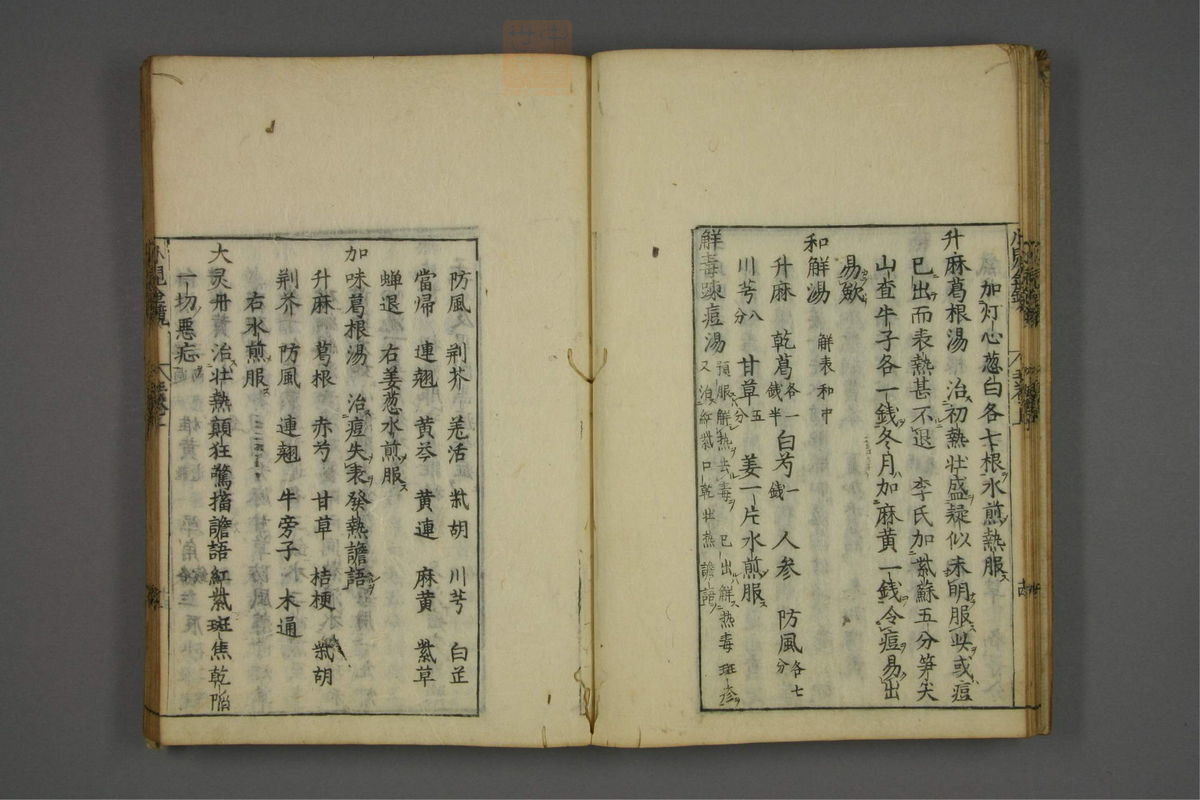 加灯心葱白各七根水煎熱服
升麻葛根湯 治初熱壮盛疑似未明服此或痘
已出而表熱甚不退 李氏加紫蘇五分笋尖
山査牛子各一銭冬月加麻黄一銭令痘易出
易歛
和解湯 解表和中
升麻 乾葛各一銭半 白芍一銭 人参 防風各七分
川芎八分 甘草五分 姜一片水煎服
解毒踈痘湯 預服解熱去毒 已出解熱毒 斑疹
又治紅紫口乾壮熱譫語
防風 荆芥 羗活 柴胡 川芎 白芷
當帰 連翹 黄芩 黄連 麻黄 紫草
蝉退 右姜葱水煎服
加味葛根湯 治痘失表發熱譫語
升麻 葛根 赤芍 甘草 桔梗 柴胡
荆芥 防風 連翹 牛旁子 木通
右水煎服
大灵丹 治壮熱顛狂驚搐譫語紅紫斑焦乾陷
一切悪症